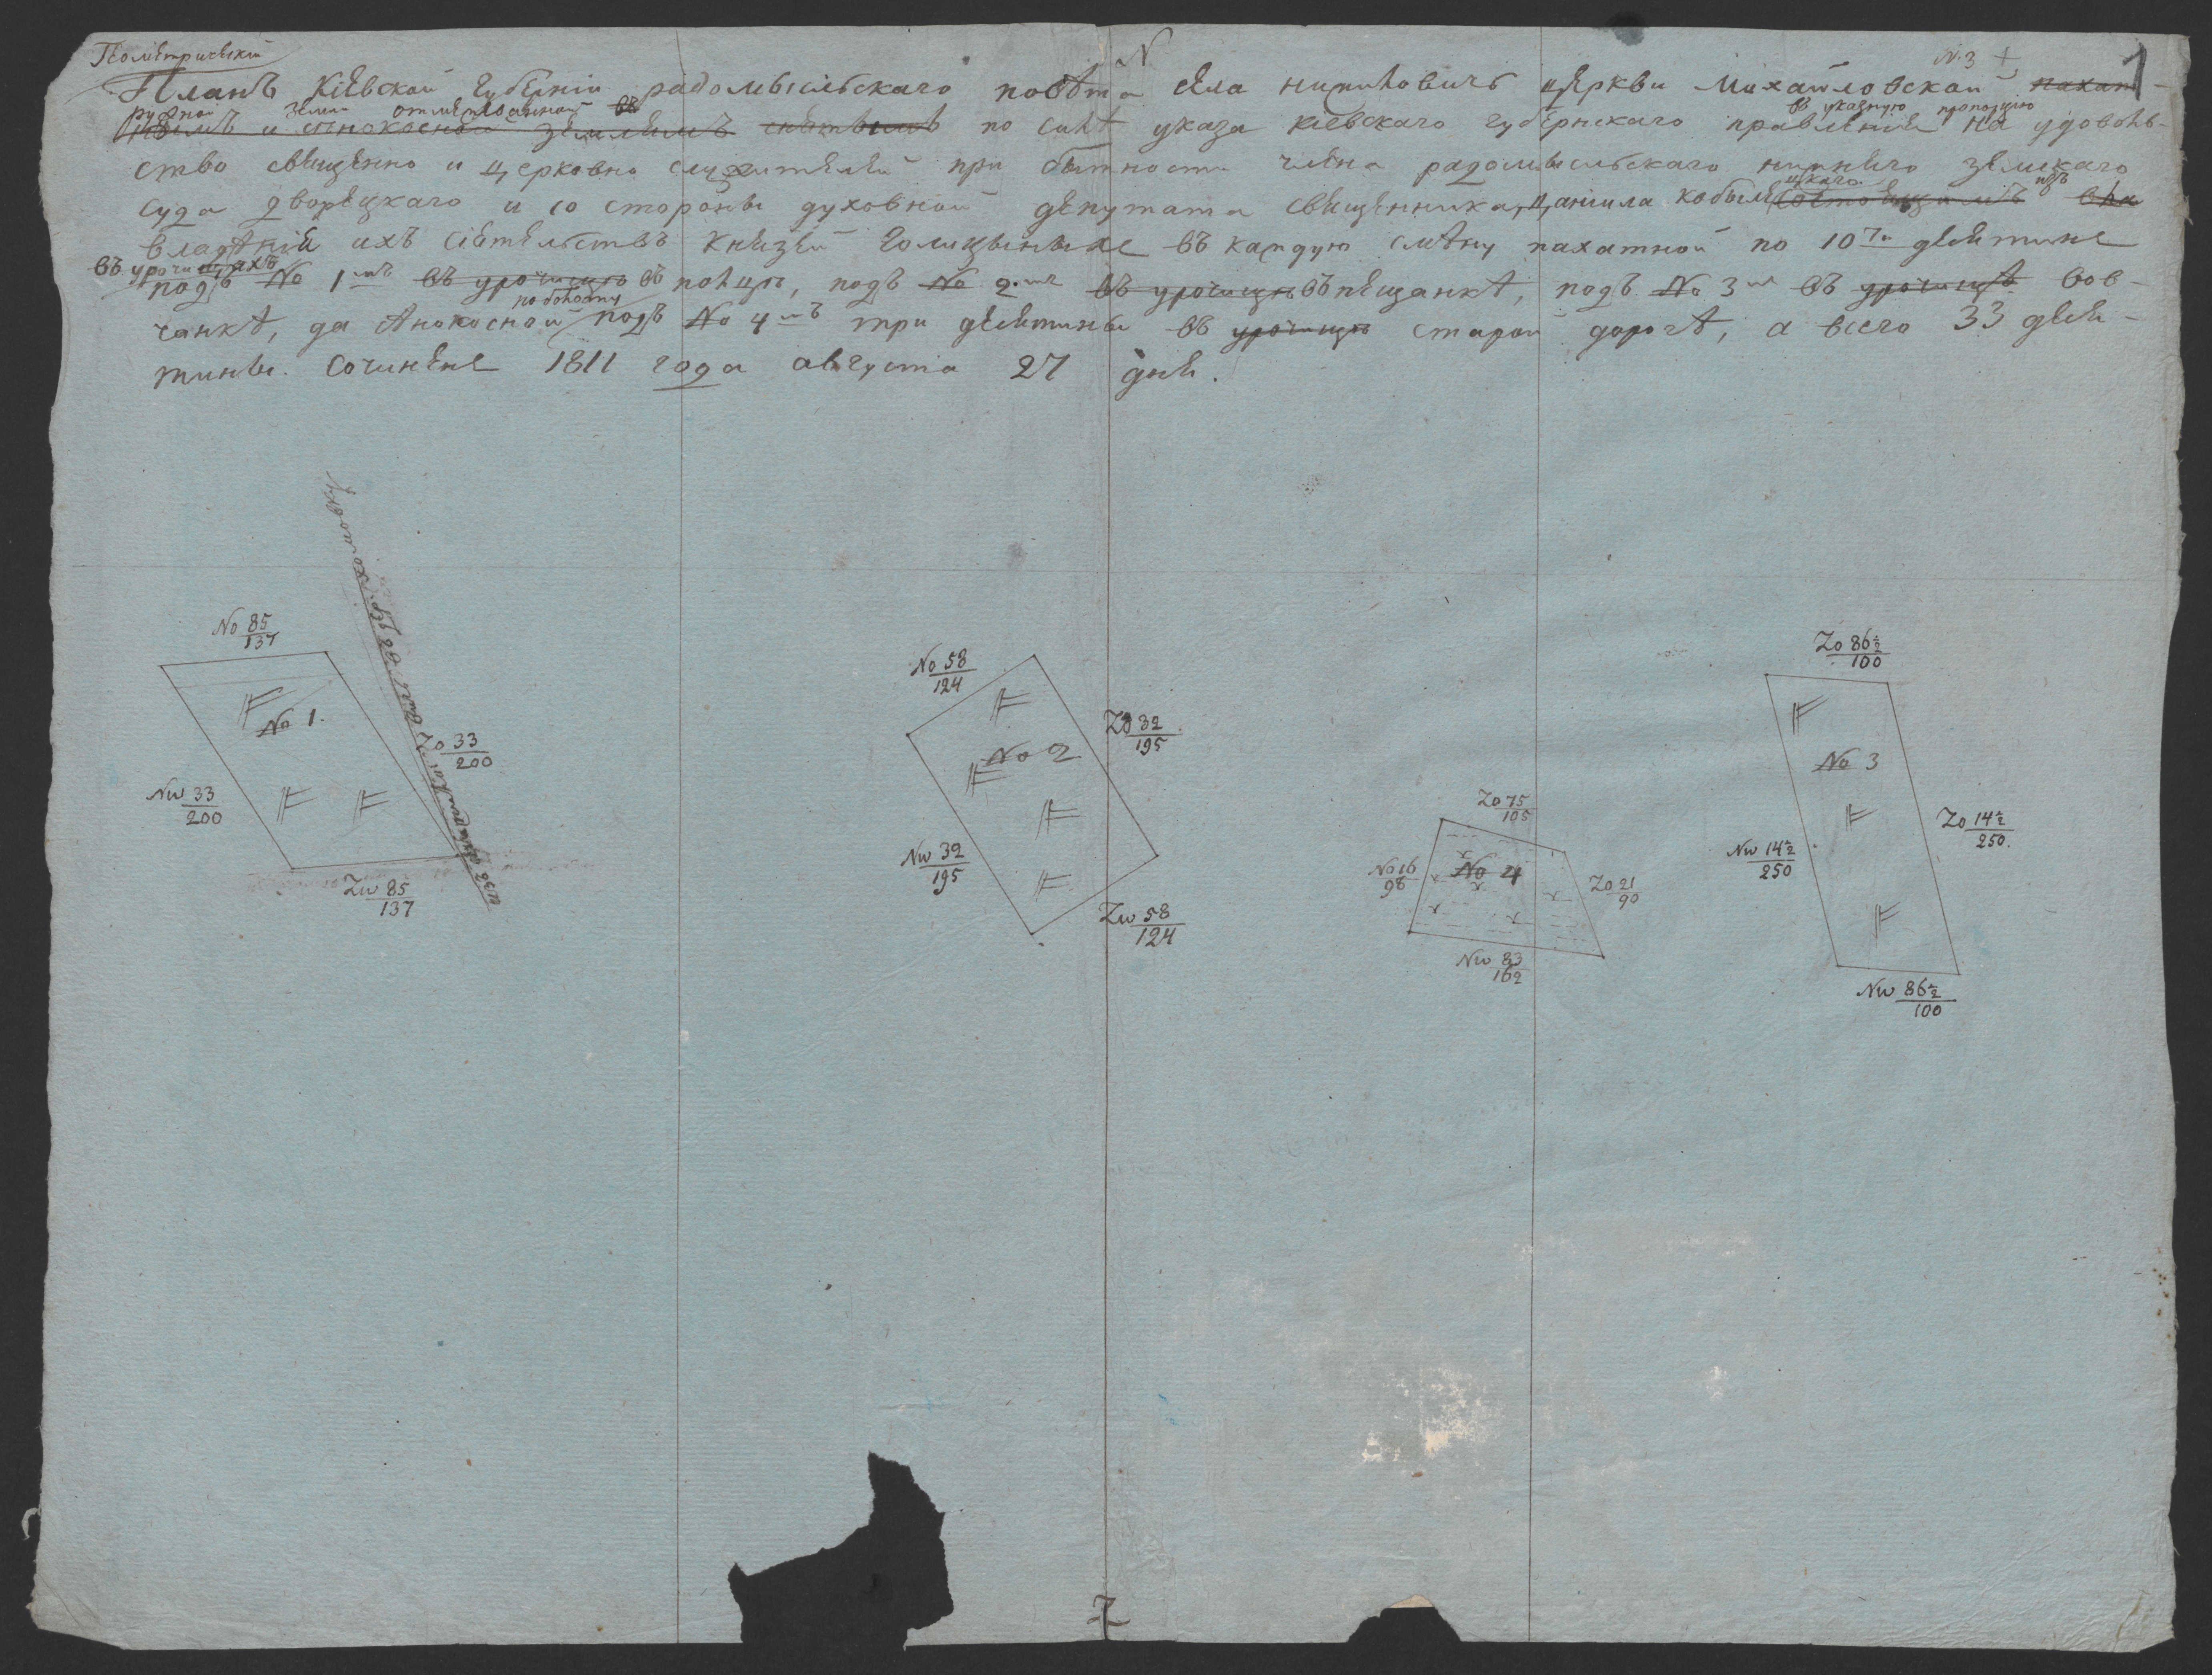 N
N. 3 +
1
Геометрической
Планъ Кіевской Губерніи радомысльскаго повѣта села нитиловичь церкви Михайловской пахат-
ружной земли отмежеванной въ въ указную пропорцію
нымъ и сѣнокосной землямъ по силѣ указа кіевскаго губернскаго правленія на удоволь-
ство священно и церковно служителей при бытности члена радомысльскаго нижнего земскаго
цкаго изъ
суда дворецкаго и со стороны духовной депутата священника даніила кобыле состоящимъ
владѣнія ихъ сіятельствъ князей Голицыныхъ въ каждую смѣну пахатной по 10ти десятинъ
въ урочищахъ
подъ No 1мъ въ урочищѣ въ подъ No 2мъ въ урочищѣ въ пещанкѣ, подъ No 3мъ въ урочищѣ вов-
по болоту
чанкѣ, да сѣнокосной подъ No 4мъ три десятины въ урочищѣ старой дорогѣ, а всего 33 деся-
тины. Сочинене 1811 года августа 27 дня.
No 85/137
No 1.
Zo 33/200
Nw 33/200
Zw 85/137
No 58/124
No 2
Zo 32/195
Nw 32/195
Zw 58/124
Zo 75/105
No 16/98
No 4
Zo 21/90
Nw 83/162
Zo 86½/100
No 3
Zo 14½/250.
Nw 14½/250
Nw 86½/100
Z